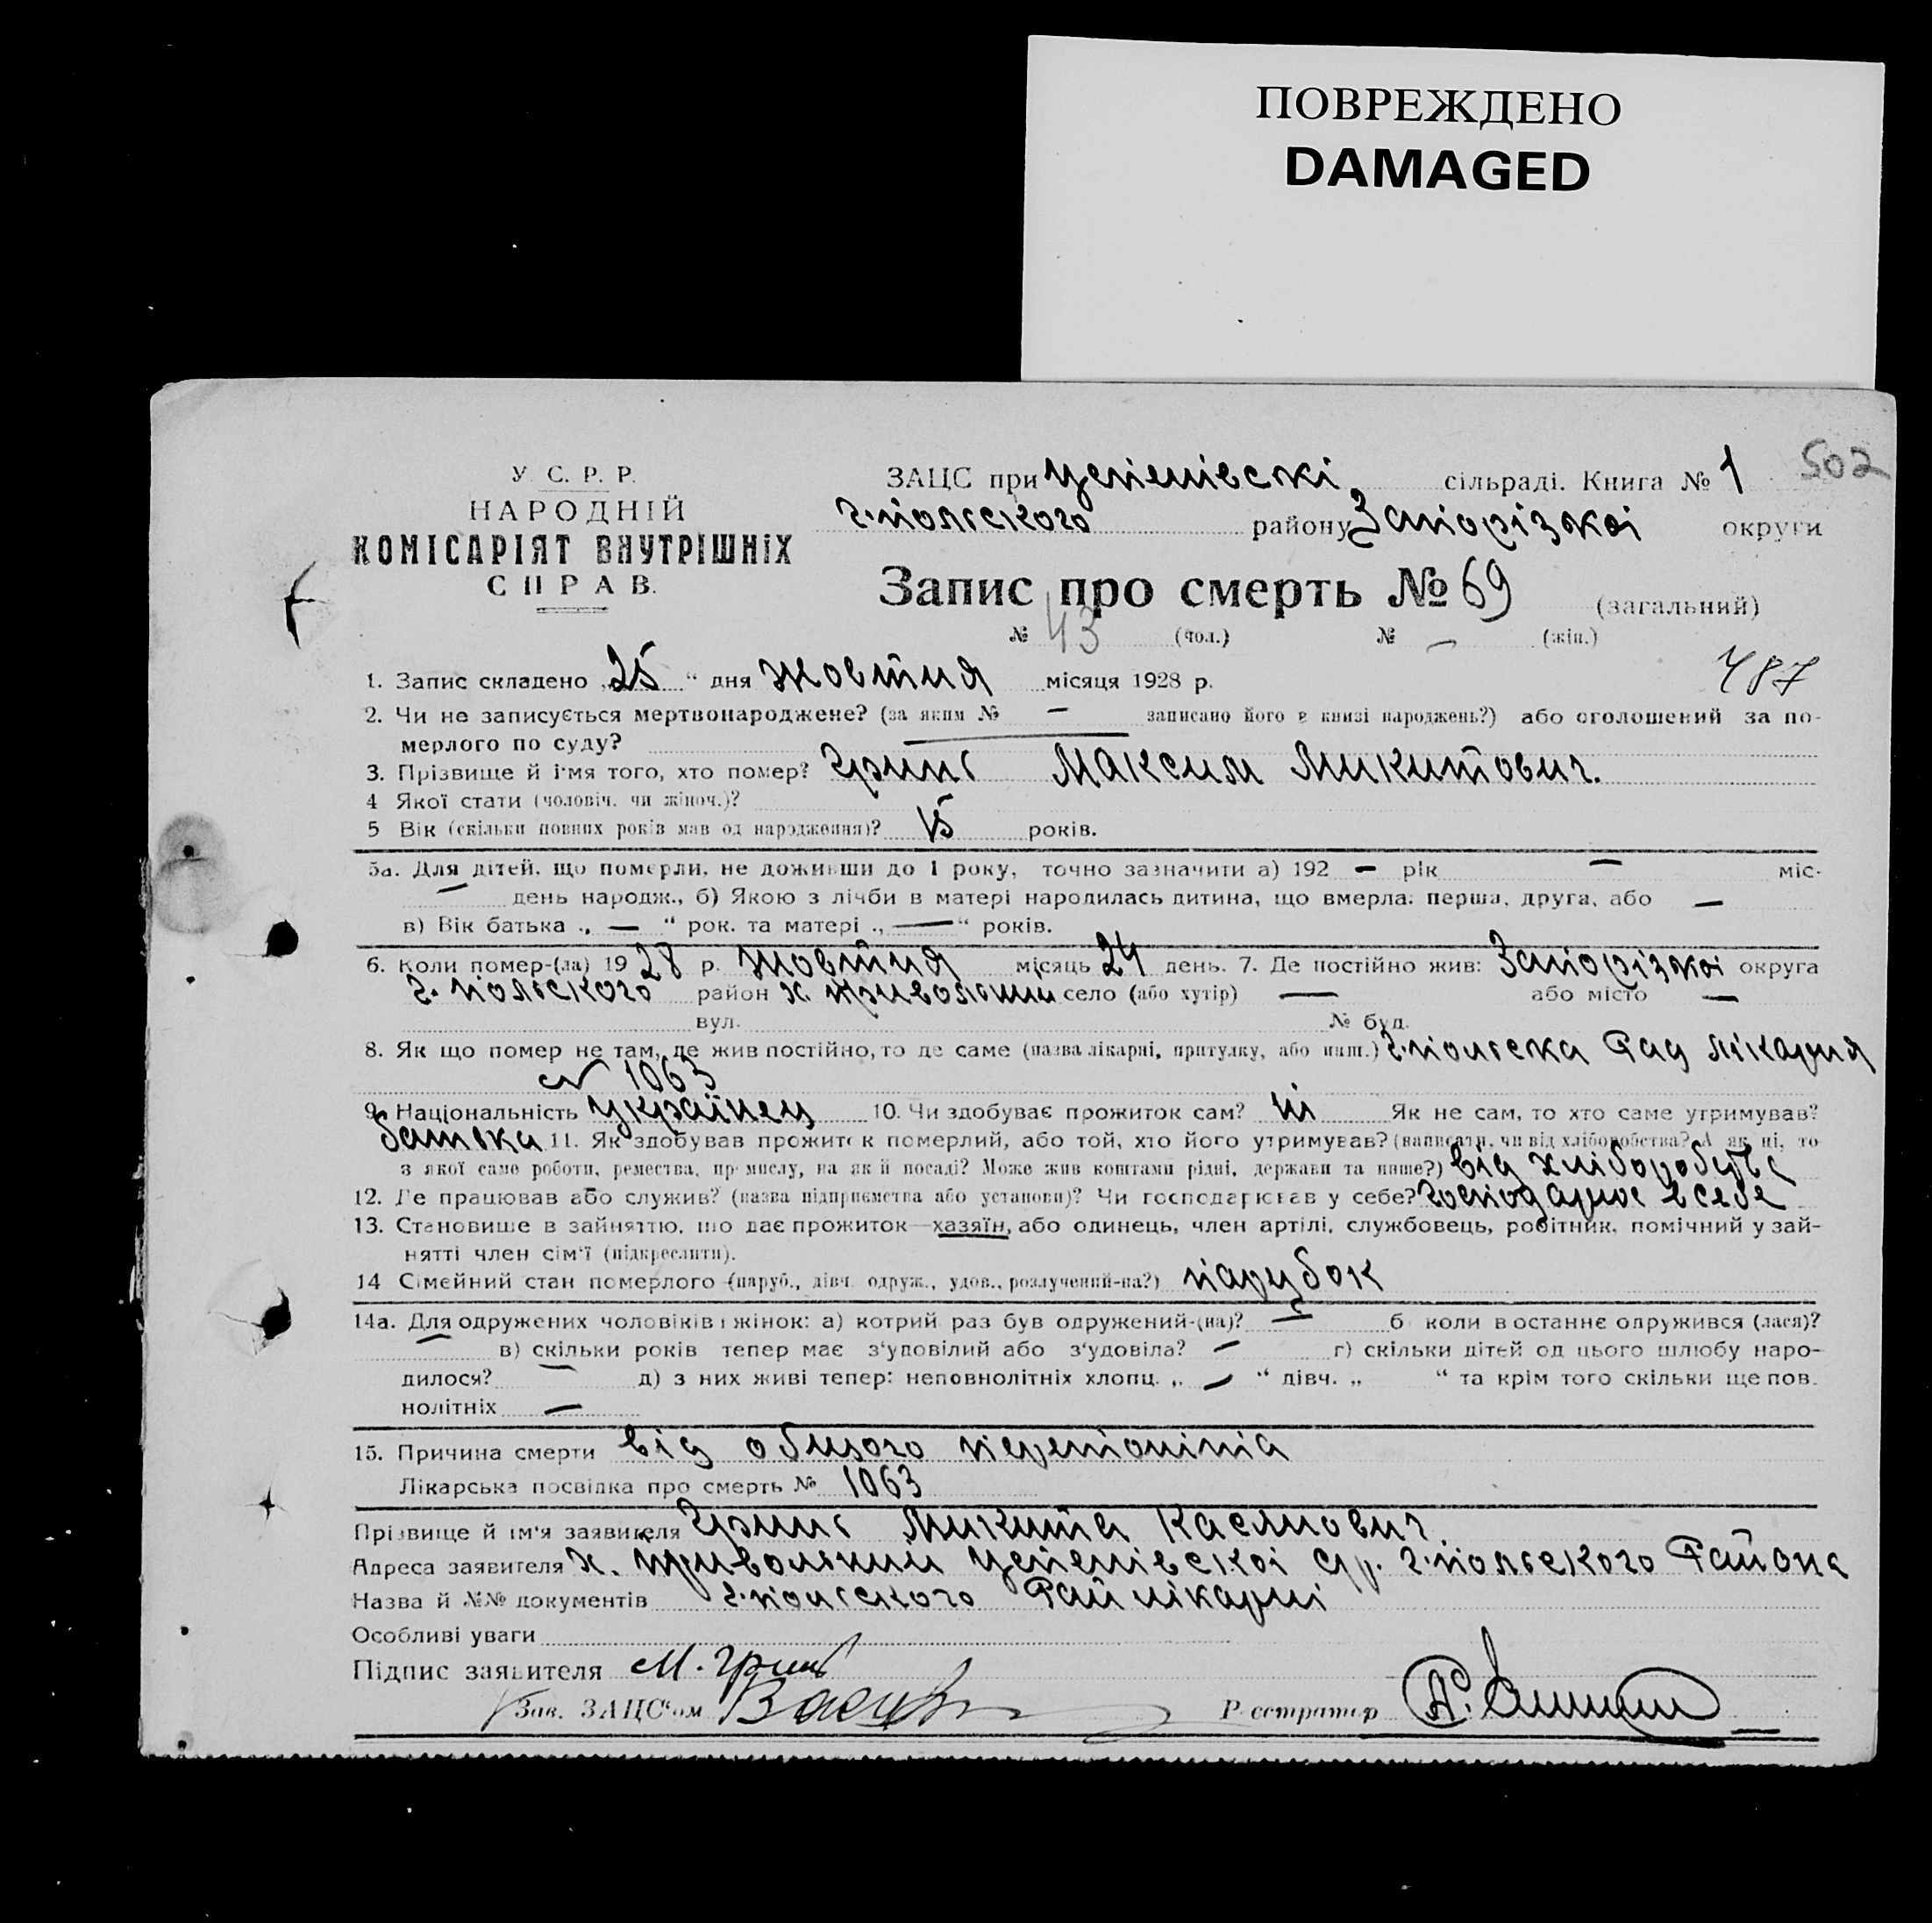 ПОВРЕЖДЕНО
DAMAGED
502
У С. Р. Р.
НАРОДНІЙ
КОМІСАРІЯТ ВНУТРІШНІХ
СПРАВ.
ЗАЦС при сільраді. Книга № 1
г.польского району Запорізкоі округи
Запис про смерть № 69 (загальний)
№ 43 (чол.) № — (жін.)
487
1. Запис складено „25“ дня жовтня місяця 1928 р.
2. Чи не записується мертвонароджене? (за яким № — записано його в книзі народжень?) або оголошений за по-
мерлого по суду? —
3. Прізвище й імя того, хто помер? Гринь Максим Микитович.
4 Якої стати (чоловіч. чи жіноч.)?
5 Вік (скільки повних років мав од народження)? 15 років.
5а. Для дітей, що померли, не доживши до 1 року, точно зазначити а) 192 — рік — міс-
— день народж., б) Якою з лічби в матері народилась дитина, що вмерла: перша, друга, або —
в) Вік батька „ — “ рок. та матері „ — “ років.
6. Коли помер-(ла) 1928 р. жовтня місяць 24 день. 7. Де постійно жив: Запорізкоі округа
г. польского район х. Привольний село (або хутір) — або місто —
вул. № буд.
8. Як що помер не там, де жив постійно, то де саме (назва лікарні, притулку, або инш.) г.польска Рай лікарня
№ 1063
9. Національність Українец 10. Чи здобуває прожиток сам? ні Як не сам, то хто саме утримував?
батька 11. Як здобував прожиток померлий, або той, хто його утримував? (написати, чи від хліборобства? А як ні, то
з якої саме роботи, ремества, промислу, на якій посаді? Може жив коштами рідні, держави та инше?) від хліборобства
12. Де працював або служив? (назва підприємства або установи)? Чи господарював у себе? господарює в себе
13. Становище в зайняттю, що дає прожиток—хазяїн, або одинець, член артілі, службовець, робітник, помічний у зай-
нятті член сім'ї (підкреслити).
14 Сімейний стан померлого (паруб., дівч. одруж., удов., розлучений-на?) парубок
14а. Для одружених чоловіків і жінок: а) котрий раз був одружений-(на)? — б) коли в останнє одружився (лася)?
— в) скільки років тепер має з'уловілий або з'удовіла? — г) скільки дітей од цього шлюбу наро-
дилося? — д) з них живі тепер: неповнолітніх хлопц. „ — “ дівч. „ “ та крім того скільки ще пов.
нолітніх —
15. Причина смерти від общого перетоніта
Лікарська посвідка про смерть № 1063
Прізвище й ім'я заявителя Гринь Микита Касянович
Адреса заявителя х. Привольний г.польского Района
Назва й №№ документів г.польского Рай лікарні
Особливі уваги
Підпис заявителя М. Гринь
Зав. ЗАЦС'ом
Реєстратор